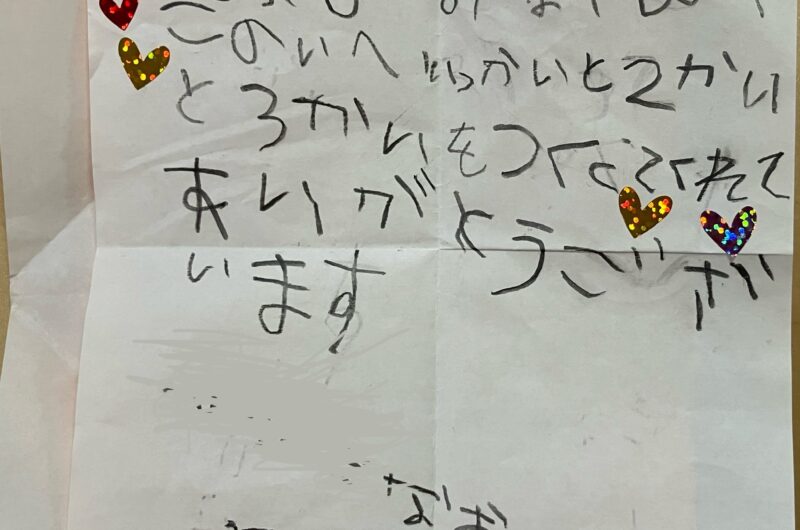 このいへ いっかいと2かい
と3かい をつくてくれて
ありがとうござ
います
なお